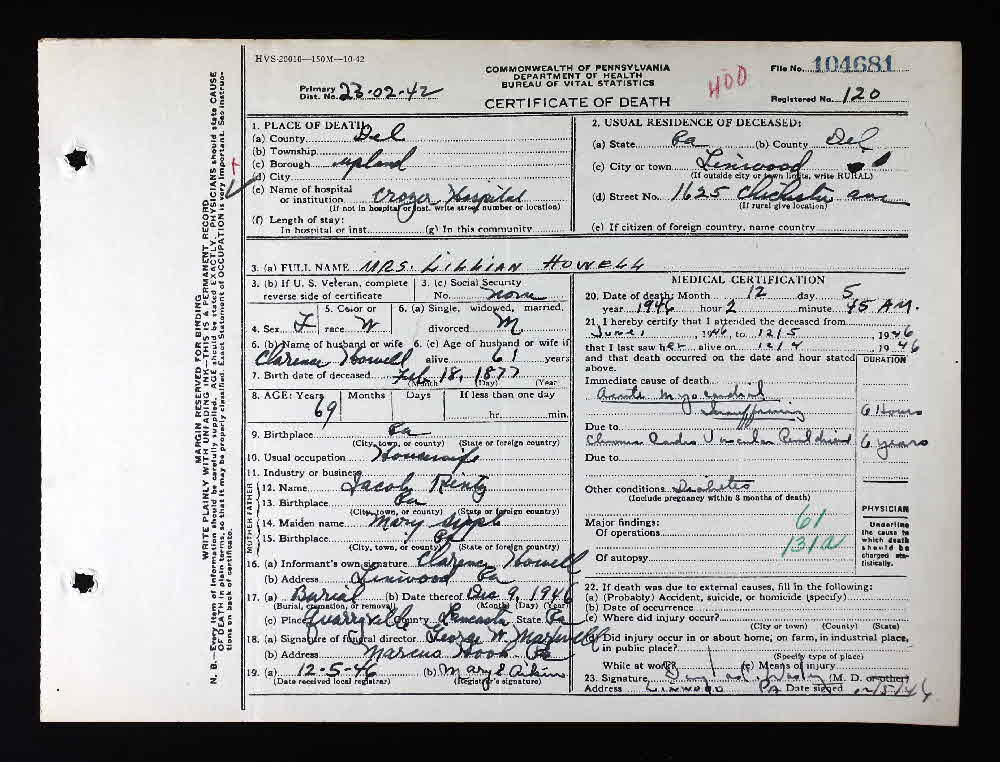 HVS-20010—150M—10-42
COMMONWEALTH OF PENNSYLVANIA
DEPARTMENT OF HEALTH
BUREAU OF VITAL STATISTICS
CERTIFICATE OF DEATH
Primary Dist. No. 23-02-42
400
File No. 104681
Registered No. 120
WRITE PLAINLY WITH UNFADING INK—THIS IS A PERMANENT RECORD
MARGIN RESERVED FOR BINDING
N. B.—Every item of information should be carefully supplied. AGE should be stated EXACTLY. PHYSICIANS should state CAUSE
OF DEATH in plain terms, so that it may be properly classified. Exact Statement of OCCUPATION is very important. See instruc-
tions on back of certificate.
1. PLACE OF DEATH:
(a) County Del
(b) Township
(c) Borough Upland
(d) City
(e) Name of hospital
or institution Crozer Hospital
(If not in hospital or inst. write street number or location)
(f) Length of stay:
In hospital or inst. (g) In this community
2. USUAL RESIDENCE OF DECEASED:
(a) State Pa (b) County Del
(c) City or town Linwood
(If outside city or town limits, write RURAL)
(d) Street No. 1625 Chichester ave
(If rural give location)
(e) If citizen of foreign country, name country
3. (a) FULL NAME MRS. LILLIAN HOWELL
3. (b) If U. S. Veteran, complete
reverse side of certificate
3. (c) Social Security
No. none
4. Sex F
5. Color or
race W
6. (a) Single, widowed, married,
divorced M
6. (b) Name of husband or wife
Clarence Howell
6. (c) Age of husband or wife if
alive 61 years
7. Birth date of deceased Feb 18, 1877
(Month) (Day) (Year
8. AGE: Years 69 Months Days If less than one day
hr. min.
9. Birthplace Pa
(City, town, or county) (State or foreign country)
10. Usual occupation Housewife
11. Industry or business
FATHER
12. Name Jacob Rintz
13. Birthplace Pa
(City, town, or county) (State or foreign country)
MOTHER
14. Maiden name Mary
15. Birthplace Pa
(City, town, or county) (State or foreign country)
16. (a) Informant's own signature Clarence Howell
(b) Address Linwood Pa
17. (a) Burial (b) Date thereof Dec 9, 1946
(Burial, cremation, or removal) (Month) (Day) (Year)
(c) Place Quarryville County Lancaster State Pa
18. (a) Signature of funeral director George W. Maxwell
(b) Address Marcus Hook Pa
19. (a) 12-5-46 (b) Mary E Aikin
(Date received local registrar) (Registrar's signature)
MEDICAL CERTIFICATION
20. Date of death: Month 12 day 5
year 1946 hour 2 minute 45 AM.
21. I hereby certify that I attended the deceased from
June 1, 1946, to 12/5, 1946
that I last saw her alive on 12/4 1946
and that death occurred on the date and hour stated
above.
DURATION
Immediate cause of death
Acute Myocardial
Insufficiency 6 Hours
Due to
Chronic Cardio Vascular Renal disease 6 years
Due to
Other conditions Diabetes
(Include pregnancy within 3 months of death)
Major findings: 61
Of operations
131a
Of autopsy
PHYSICIAN
Underline
the cause to
which death
should be
charged sta-
tistically.
22. If death was due to external causes, fill in the following:
(a) (Probably) Accident, suicide, or homicide (specify)
(b) Date of occurrence
(c) Where did injury occur?
(City or town) (County) (State)
(d) Did injury occur in or about home, on farm, in industrial place,
in public place?
(Specify type of place)
While at work? (e) Means of injury
23. Signature (M. D. or other)
Address LINWOOD PA Date signed 12/5/46